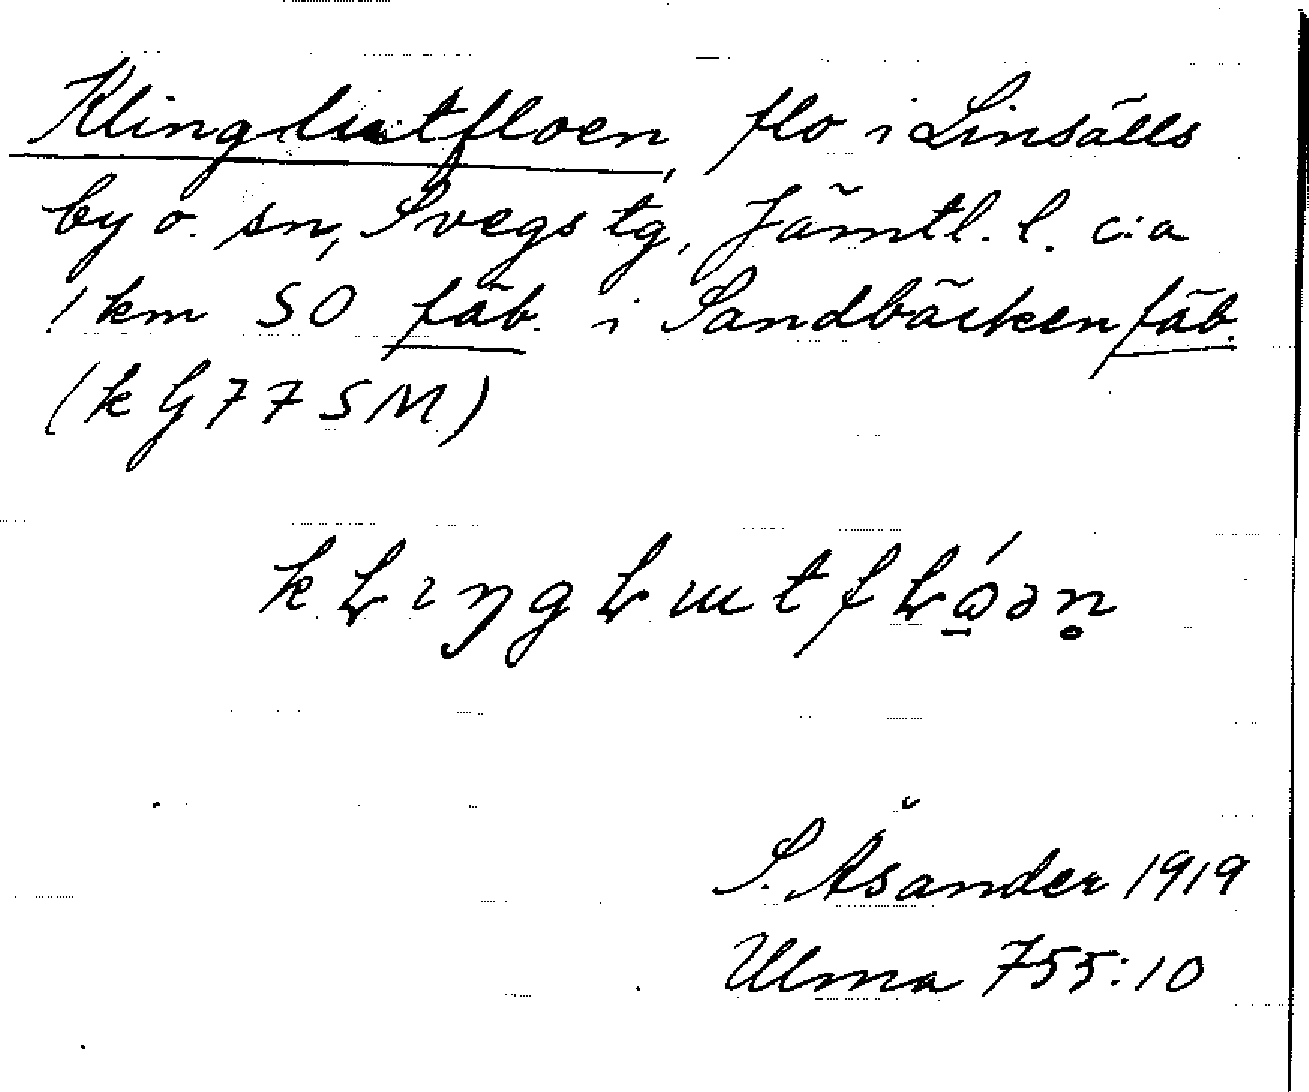 Klinglutfloen, flo i Linsälls
by o. sn, Svegs tg, Jämtl. l. c:a
1 km SO fäb. i Sandbäcken fäb.
(k G 7 7 S M)
S. Åsander 1919
Ulma 755:10